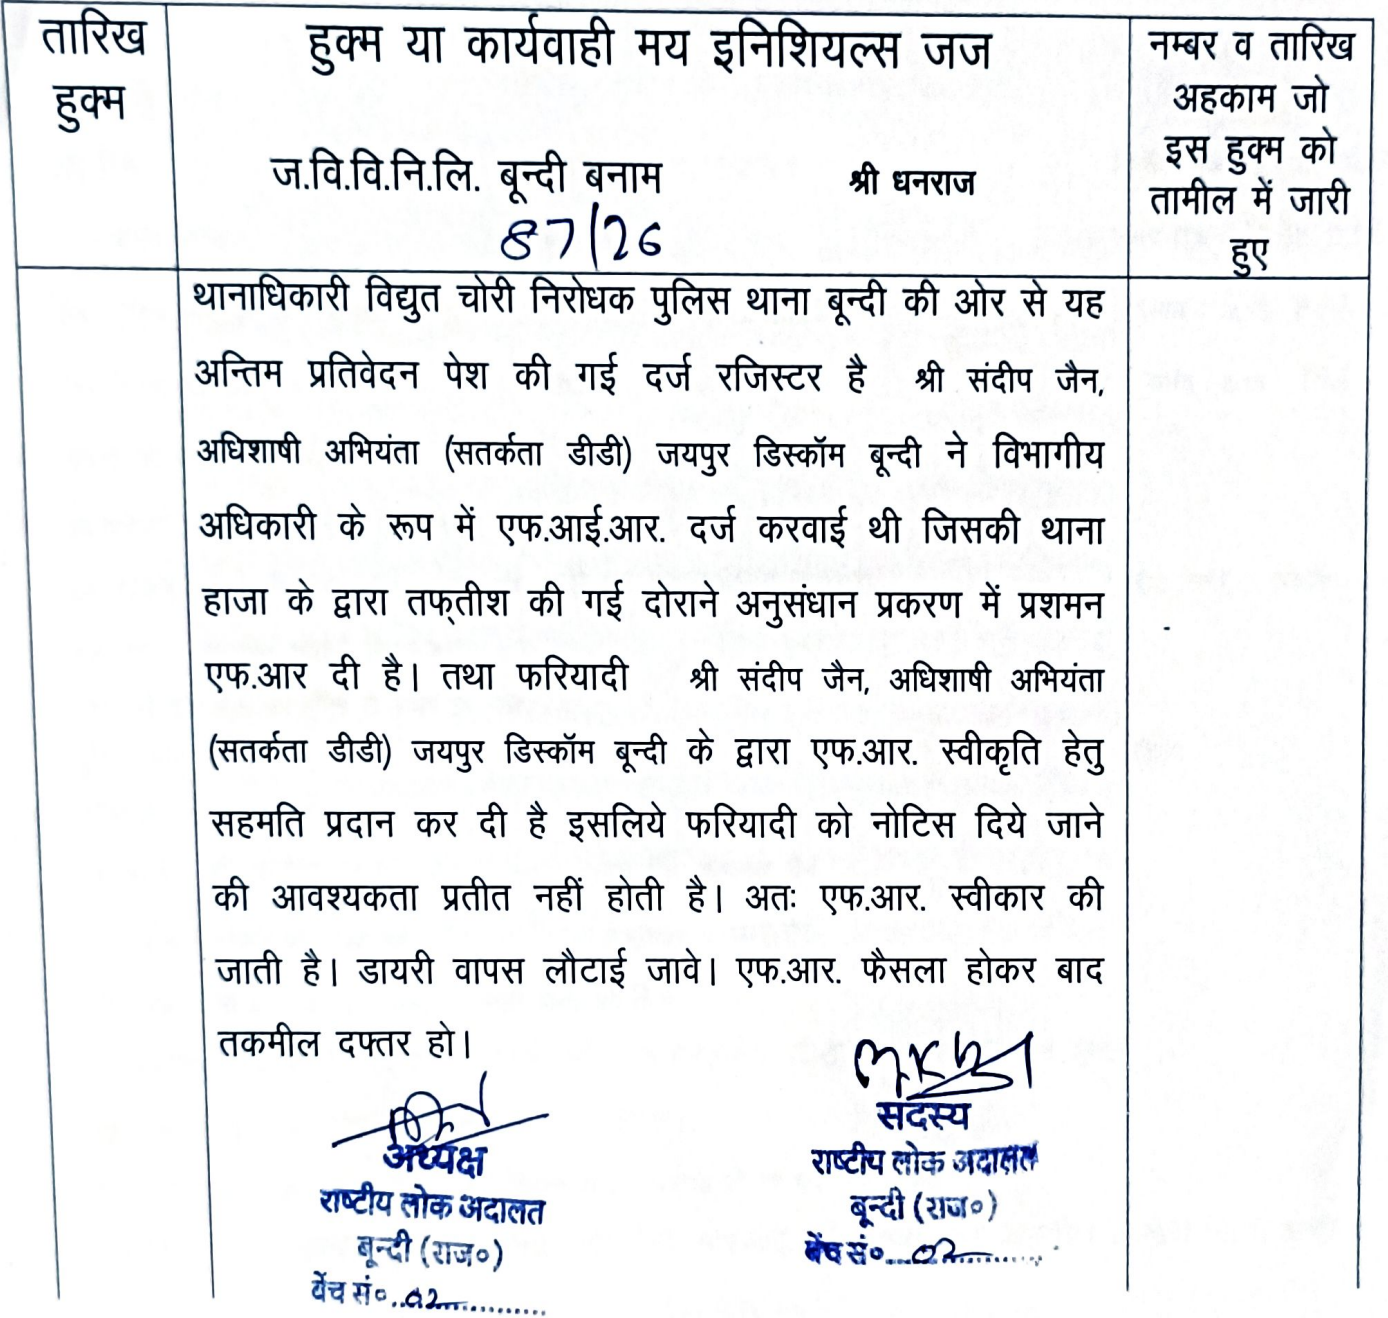 तारिख
हुक्म
हुक्म या कार्यवाही मय इनिशियल्स जज
ज.वि.वि.नि.लि. बून्दी बनाम श्री धनराज
87/26
नम्बर व तारिख
अहकाम जो
इस हुक्म को
तामील में जारी
हुए
थानाधिकारी विद्युत चोरी निरोधक पुलिस थाना बून्दी की ओर से यह
अन्तिम प्रतिवेदन पेश की गई दर्ज रजिस्टर है श्री संदीप जैन,
अधिशाषी अभियंता (सतर्कता डीडी) जयपुर डिस्कॉम बून्दी ने विभागीय
अधिकारी के रूप में एफ.आई.आर. दर्ज करवाई थी जिसकी थाना
हाजा के द्वारा तफ्तीश की गई दोराने अनुसंधान प्रकरण में प्रशमन
एफ.आर दी है। तथा फरियादी श्री संदीप जैन, अधिशाषी अभियंता
(सतर्कता डीडी) जयपुर डिस्कॉम बून्दी के द्वारा एफ.आर. स्वीकृति हेतु
सहमति प्रदान कर दी है इसलिये फरियादी को नोटिस दिये जाने
की आवश्यकता प्रतीत नहीं होती है। अतः एफ.आर. स्वीकार की
जाती है। डायरी वापस लौटाई जावे। एफ.आर. फैसला होकर बाद
तकमील दफ्तर हो।
अध्यक्ष
राष्टीय लोक अदालत
बून्दी (राज०)
बेंच सं०..02..............
सदस्य
राष्टीय लोक अदालत
बून्दी (राज०)
बेंच सं०...02..............